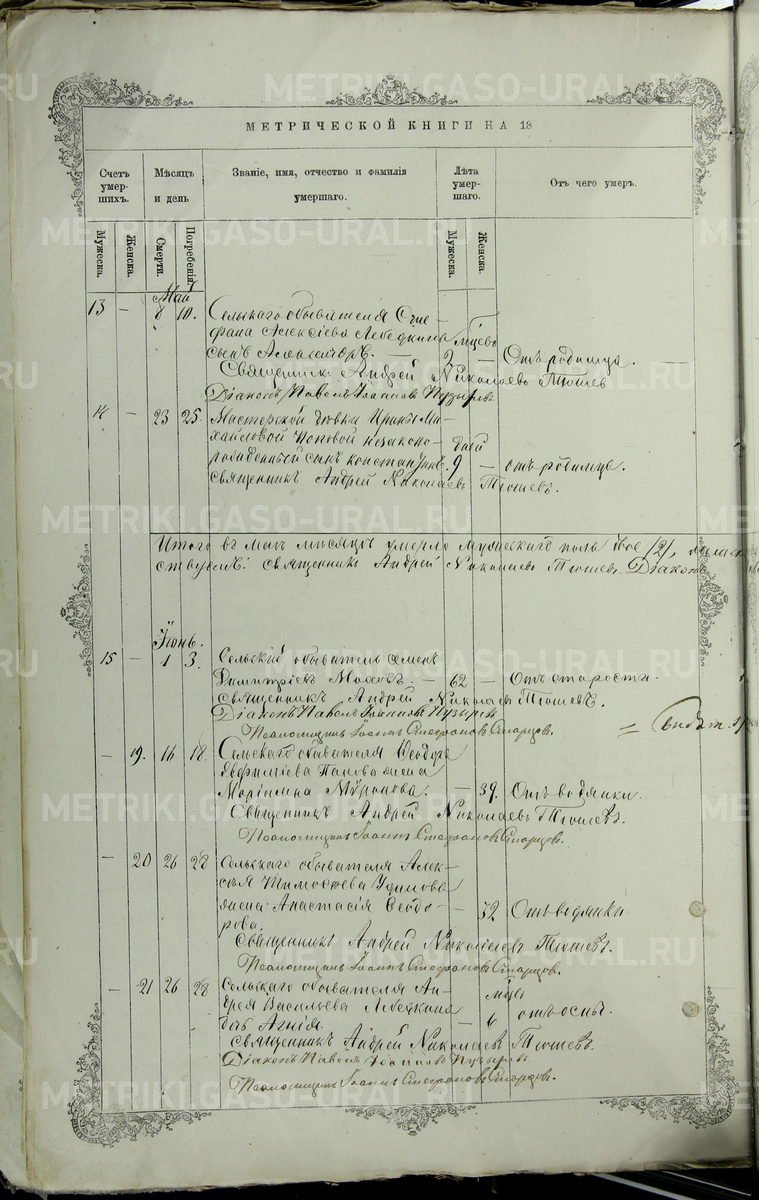 METRIKI.GASO-URAL.RU
МЕТРИЧЕСКОЙ КНИГИ НА 18
Счетъ умер-шихъ.
Мѣсяцъ и день
Званіе, имя, отчество и фамилія умершаго.
Лѣта умер-шаго.
Отъ чего умеръ.
Мужеска.
Женска.
Смерти.
Погребенія
Мужеска.
Женска.
Май
13 — 8 10. Сельскаго обывателя Сте-
фана Алексѣева Лебедкина мцевъ
сынъ Александръ. — 2 — Отъ родимца. —
Священникъ Андрей Николаевъ Тюшевъ
Діаконъ Павелъ Іоанновъ Пузыревъ
14 — 23 25 Мастерской дѣвки Ирины Ми-
хайловой Поповой незаконо- дней
рожденный сынъ Константинъ. 9 — отъ родимца.
священникъ Андрей Николаевъ Тюшевъ.
Итого въ маѣ мѣсяцѣ умерло мужескаго пола двое /2/,
священникъ Андрей Николаевъ Тюшевъ. Діаконъ
Іюнь.
15 — 1 3. Сельскій обыватель Семенъ
Димитріевъ — 62 — Отъ старости.
священникъ Андрей Николаевъ Тюшевъ.
Діаконъ Павелъ Іоанновъ Пузыревъ
Псаломщикъ Іоаннъ Стефановъ Старцовъ.
— 19. 16 18. Сельскаго обывателя Ѳеодора
Панова жена
Миронова. — 39. Отъ водянки.
Священникъ Андрей Николаевъ Тюшевъ.
Псаломщикъ Іоаннъ Стефановъ Старцовъ.
— 20 26 28 Сельскаго обывателя Алек-
сѣя Тимоѳеева
жена Анастасія Ѳеодо- — 32 Отъ водянки
рова.
Священникъ Андрей Николаевъ Тюшевъ.
Псаломщикъ Іоаннъ Стефановъ Старцовъ.
— 21 26 28 Сельскаго обывателя Ан-
дрея Васильева Лебедкина мцевъ
дочь Агнія. — 6 отъ оспы.
священникъ Андрей Николаевъ Тюшевъ.
Діаконъ Павелъ Іоанновъ Пузыревъ
Псаломщикъ Іоаннъ Стефановъ Старцовъ.